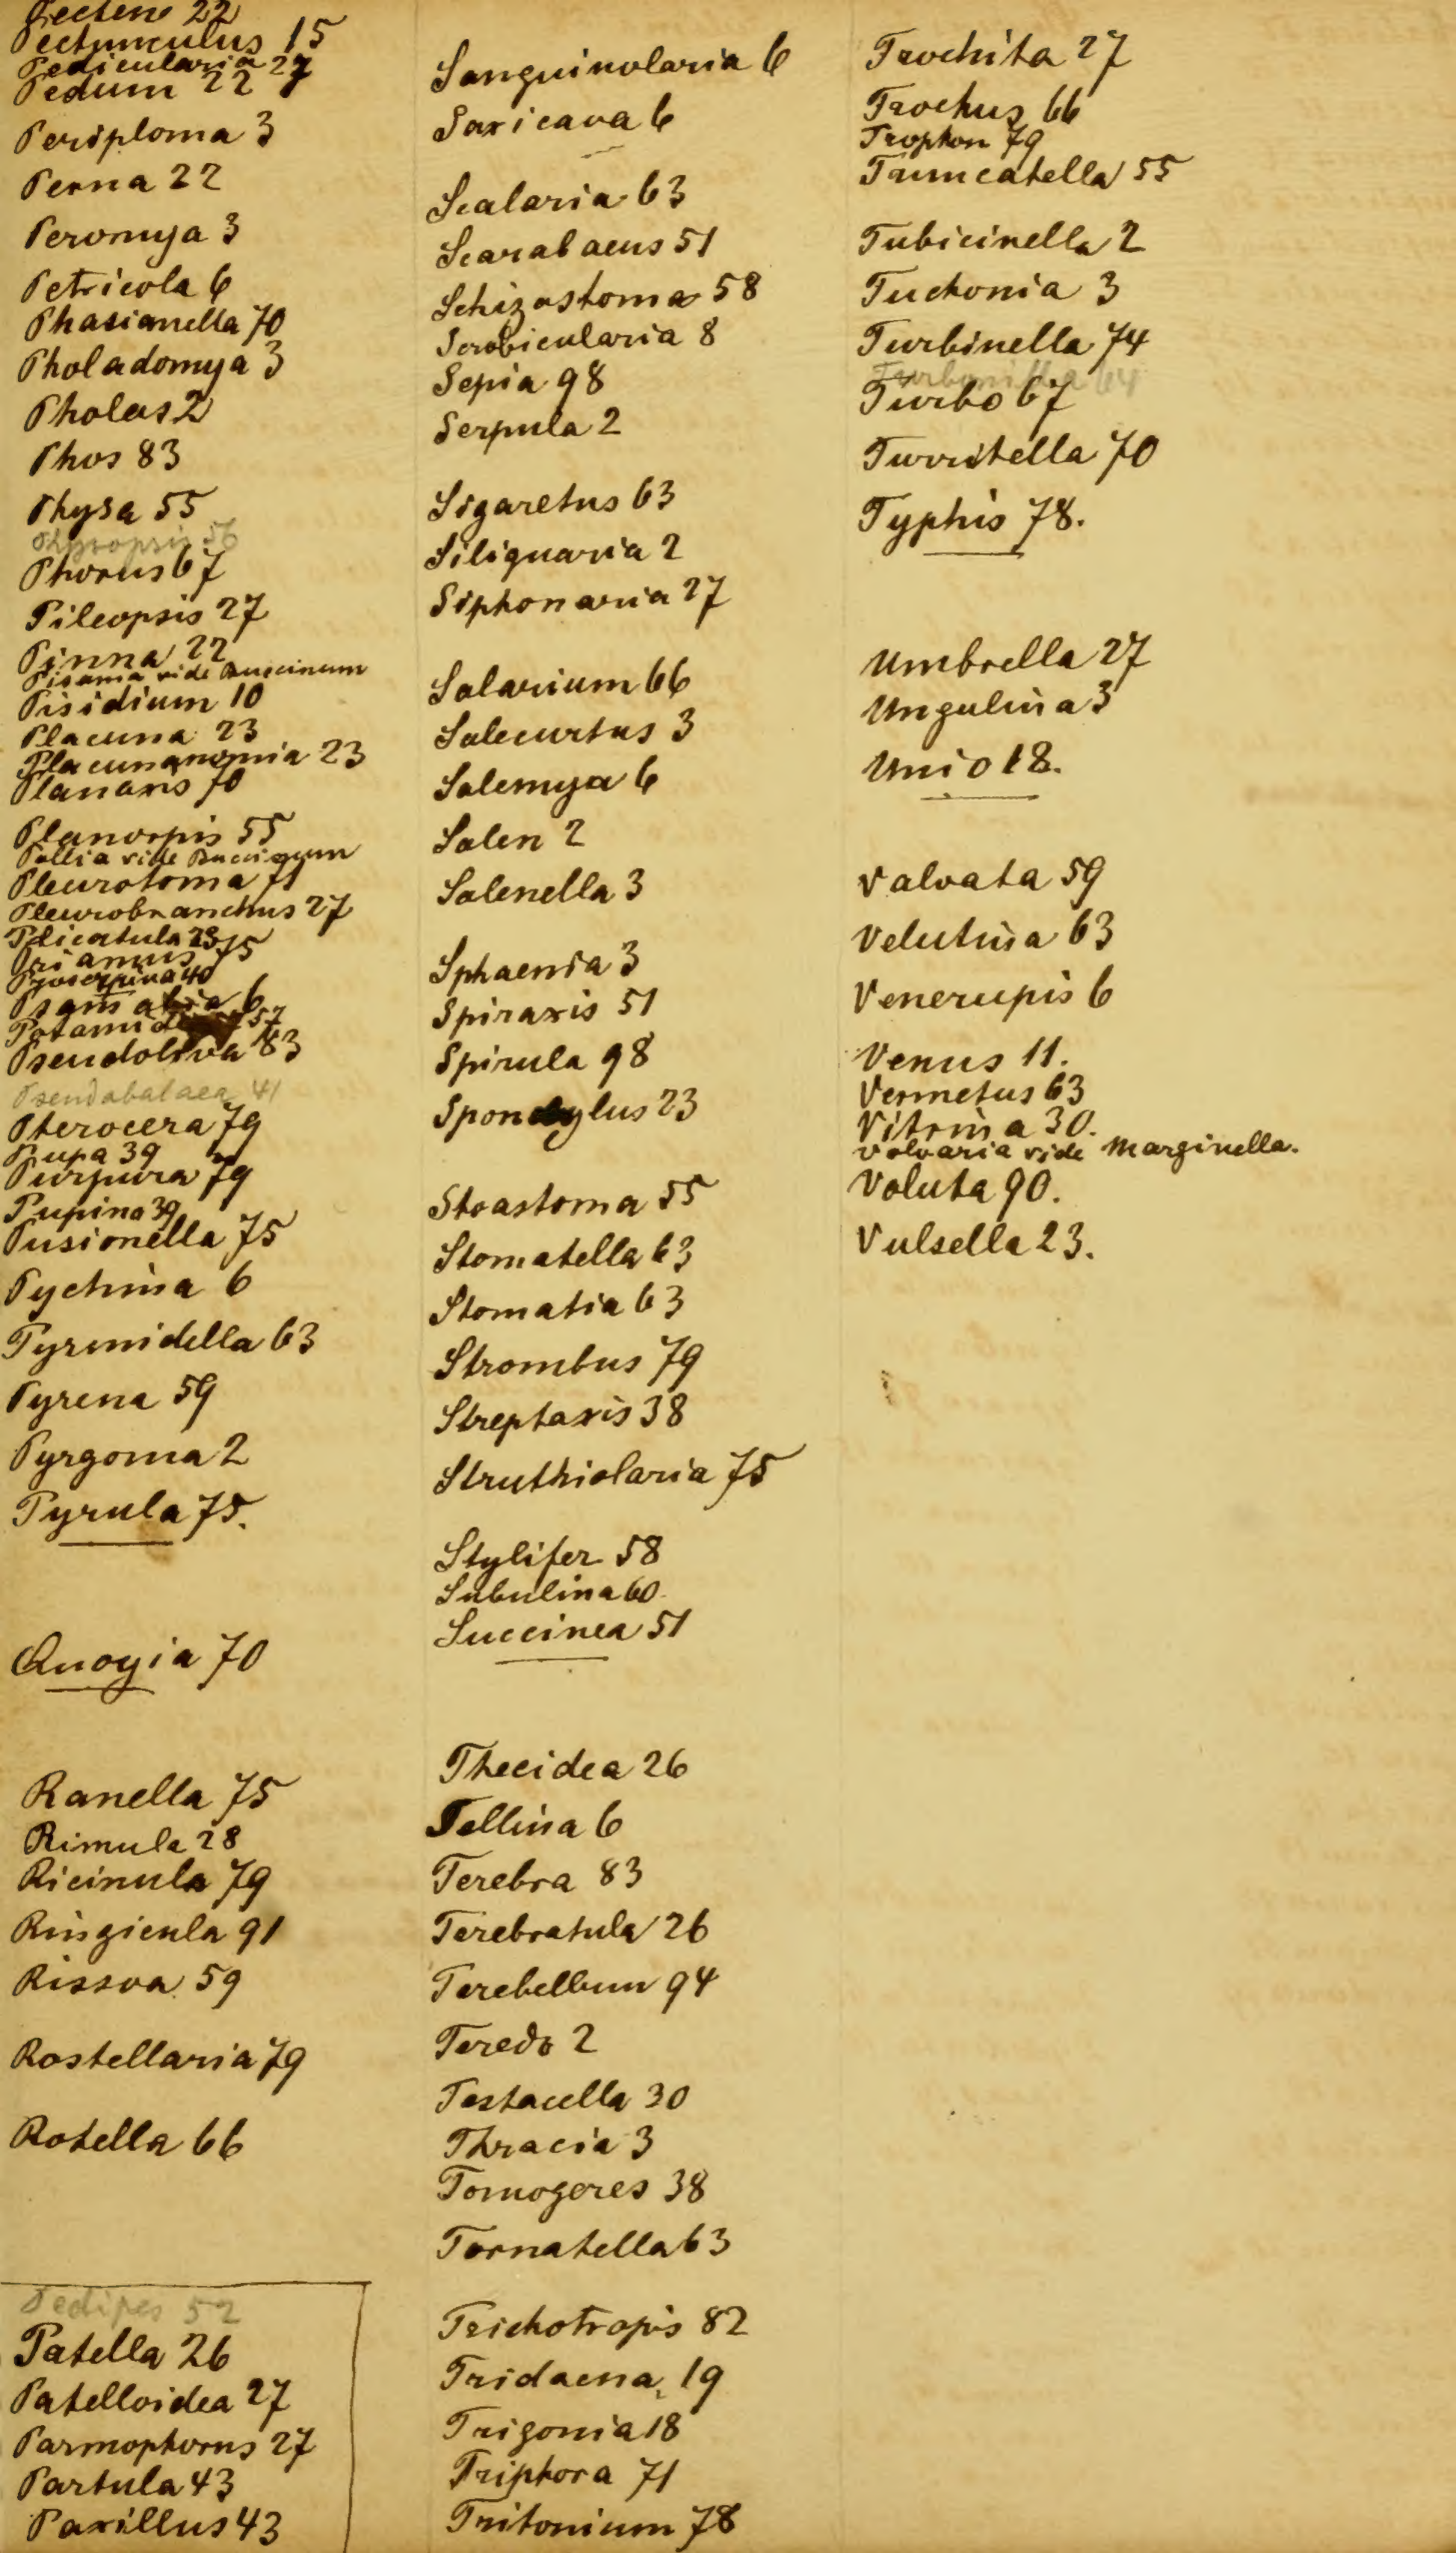 Pecten 22
Pectunculus 15
Pedicularia 27
Pedum 22
Periploma 3
Perna 22
Peromya 3
Petricola 6
Phasianella 70
Pholadomya 3
Pholas 2
Phos 83
Physa 55
Physopsis 56
Phorus 67
Pileopsis 27
Pinna 22
Pisania vide Buccinum
Pisidium 10
Placuna 23
Placunanomia 23
Planaxis 70
Planorpis 55
Pollia vide Buccinum
Pleurotoma 71
Pleurobranchus 27
Plicatula 23
Priamus 75
Proserpina 40
Psamobia 6
Potamides 57
Pseudoliva 83
Pseudabalaea 41
Pterocera 79
Pupa 39
Purpura 79
Pupina 39
Pusionella 75
Pychina 6
Pyrmidella 63
Pyrena 59
Pyrgoma 2
Pyrula 75.
Quoyia 70
Ranella 75
Rimula 28
Ricinula 79
Ringicula 91
Rissoa 59
Rostellaria 79
Rotella 66
Pedipes 52
Patella 26
Patelloidea 27
Parmophorus 27
Partula 43
Paxillus 43
Sanguinolaria 6
Saxicava 6
Scalaria 63
Scarabaeus 51
Schizostoma 58
Scrobicularia 8
Sepia 98
Serpula 2
Sigaretus 63
Siliquaria 2
Siphonaria 27
Solarium 66
Solecurtus 3
Solemya 6
Solen 2
Solenella 3
Sphaenia 3
Spiraxis 51
Spirula 98
Spondylus 23
Stoastoma 55
Stomatella 63
Stomatia 63
Strombus 79
Streptaxis 38
Struthiolaria 75
Stylifer 58
Subulina 60
Succinea 51
Thecidea 26
Tellina 6
Terebra 83
Terebratula 26
Terebellum 94
Teredo 2
Testacella 30
Thracia 3
Tomogeres 38
Tornatella 63
Trichotropis 82
Tridacna 19
Trigonia 18
Triphora 71
Tritonium 78
Trochita 27
Trochus 66
Trophon 79
Truncatella 55
Tubicinella 2
Tuchonia 3
Turbinella 74
Turbonilla 64
Turbo 67
Turritella 70
Typhis 78.
Umbrella 27
Ungulina 3
Unio 18.
Valvata 59
Velutina 63
Venerupis 6
Venus 11.
Vermetus 63
Vitrina 30.
Volvaria vide Marginella.
Voluta 90.
Vulsella 23.